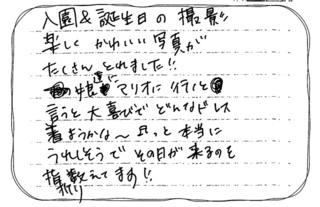 入園&誕生日の撮影
楽しく かわいい写真が
たくさん とれました!!
娘達に マリオに行くと
言うと大喜びで どんなドレス
着ようかな〜 ず〜っと本当に
うれしそうで その日が来るのを
指折り数えてます!!